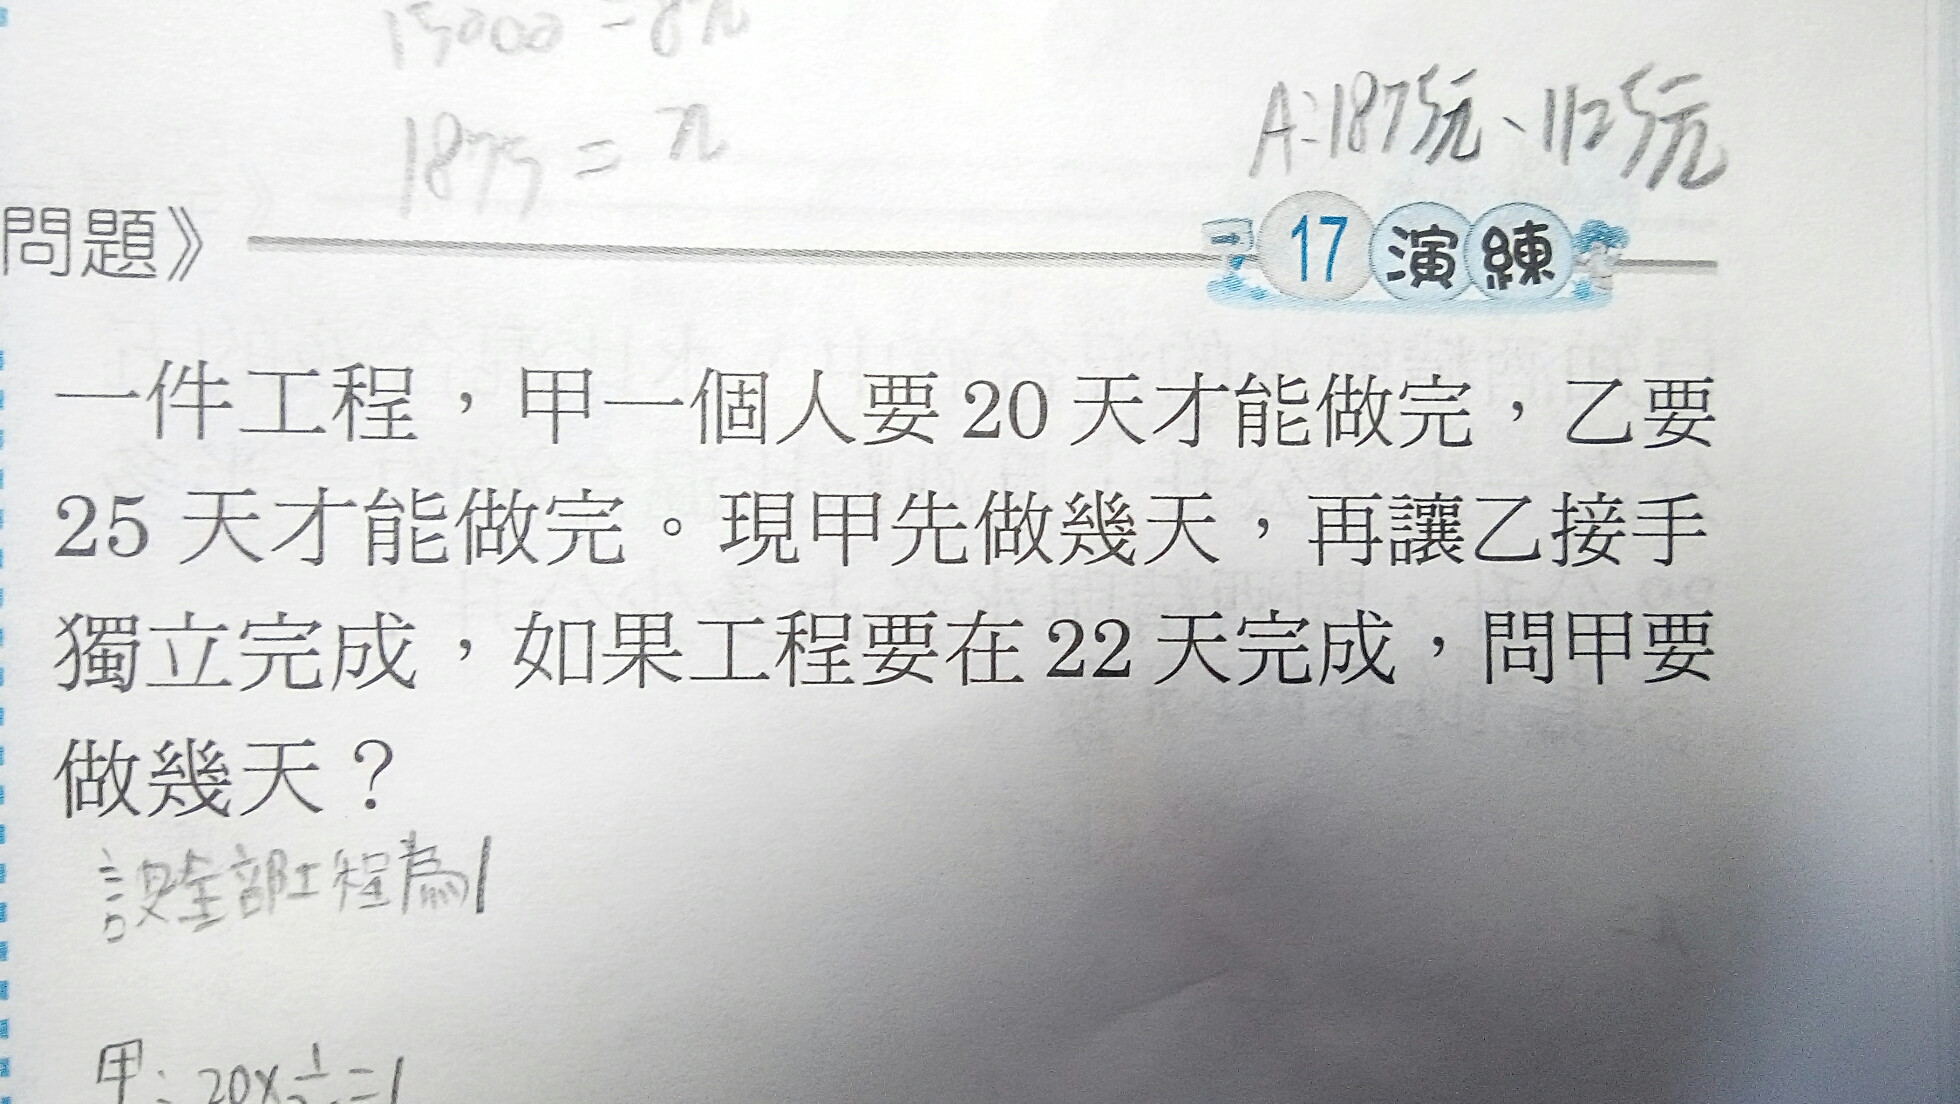 15000 = 8x
1875 = x
A:1875元、1125元
問題》
17 演練
一件工程，甲一個人要20天才能做完，乙要
25天才能做完。現甲先做幾天，再讓乙接手
獨立完成，如果工程要在22天完成，問甲要
做幾天？
設全部工程為1
甲:20×
=1